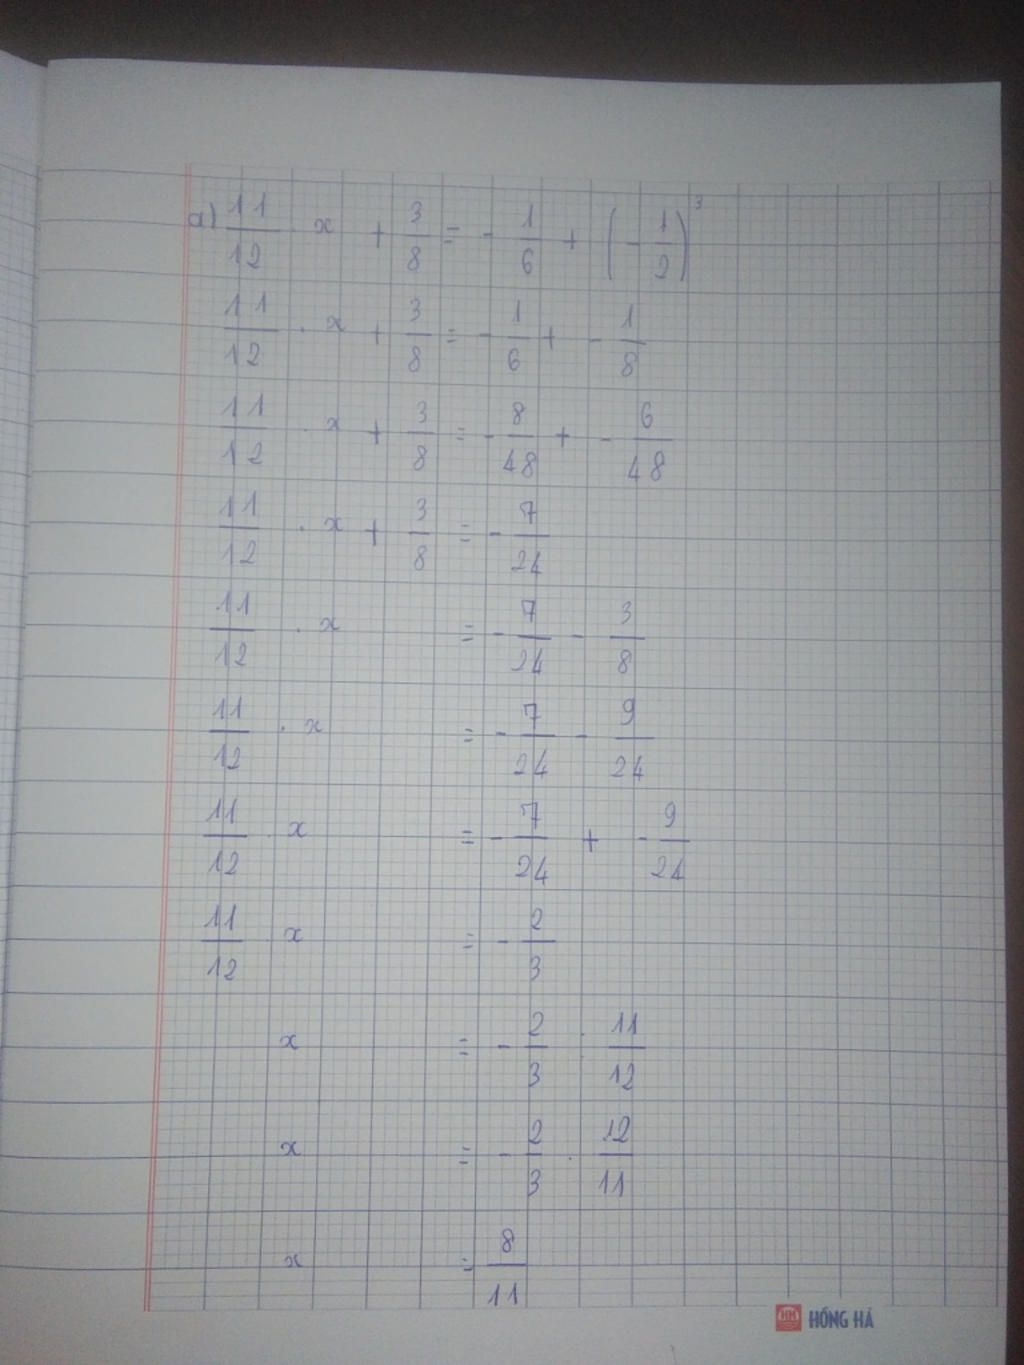 a) 11/12 . x + 3/8 = - 1/6 + (- 1/2)³
11/12 . x + 3/8 = - 1/6 + - 1/8
11/12 . x + 3/8 = - 8/48 + - 6/48
11/12 . x + 3/8 = - 7/24
11/12 . x = - 7/24 - 3/8
11/12 . x = - 7/24 - 9/24
11/12 . x = - 7/24 + - 9/24
11/12 . x = - 2/3
x = - 2/3 : 11/12
x = - 2/3 . 12/11
x = 8/11
HH HỒNG HÀ